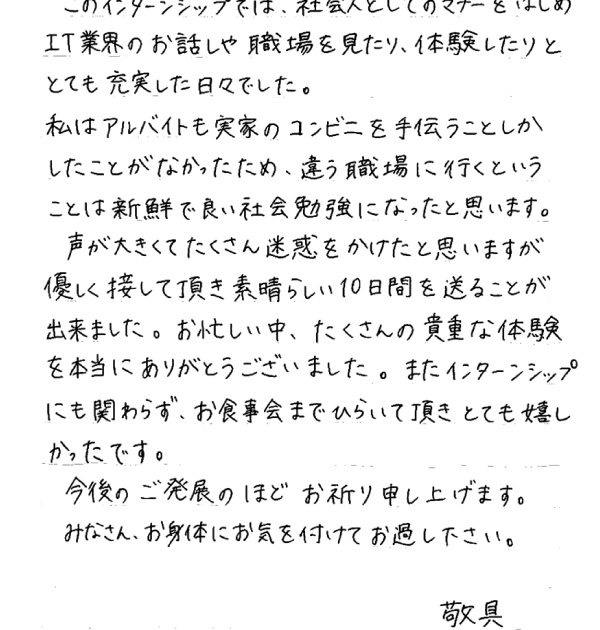 このインターンシップでは、社会人としてのマナーをはじめ
IT業界のお話しや職場を見たり、体験したりと
とても充実した日々でした。
私はアルバイトも実家のコンビニを手伝うことしか
したことがなかったため、違う職場に行くという
ことは新鮮で良い社会勉強になったと思います。
声が大きくてたくさん迷惑をかけたと思いますが
優しく接して頂き素晴らしい10日間を送ることが
出来ました。お忙しい中、たくさんの貴重な体験
を本当にありがとうございました。またインターンシップ
にも関わらず、お食事会までひらいて頂きとても嬉し
かったです。
今後のご発展のほどお祈り申し上げます。
みなさん、お身体にお気を付けてお過し下さい。
敬具